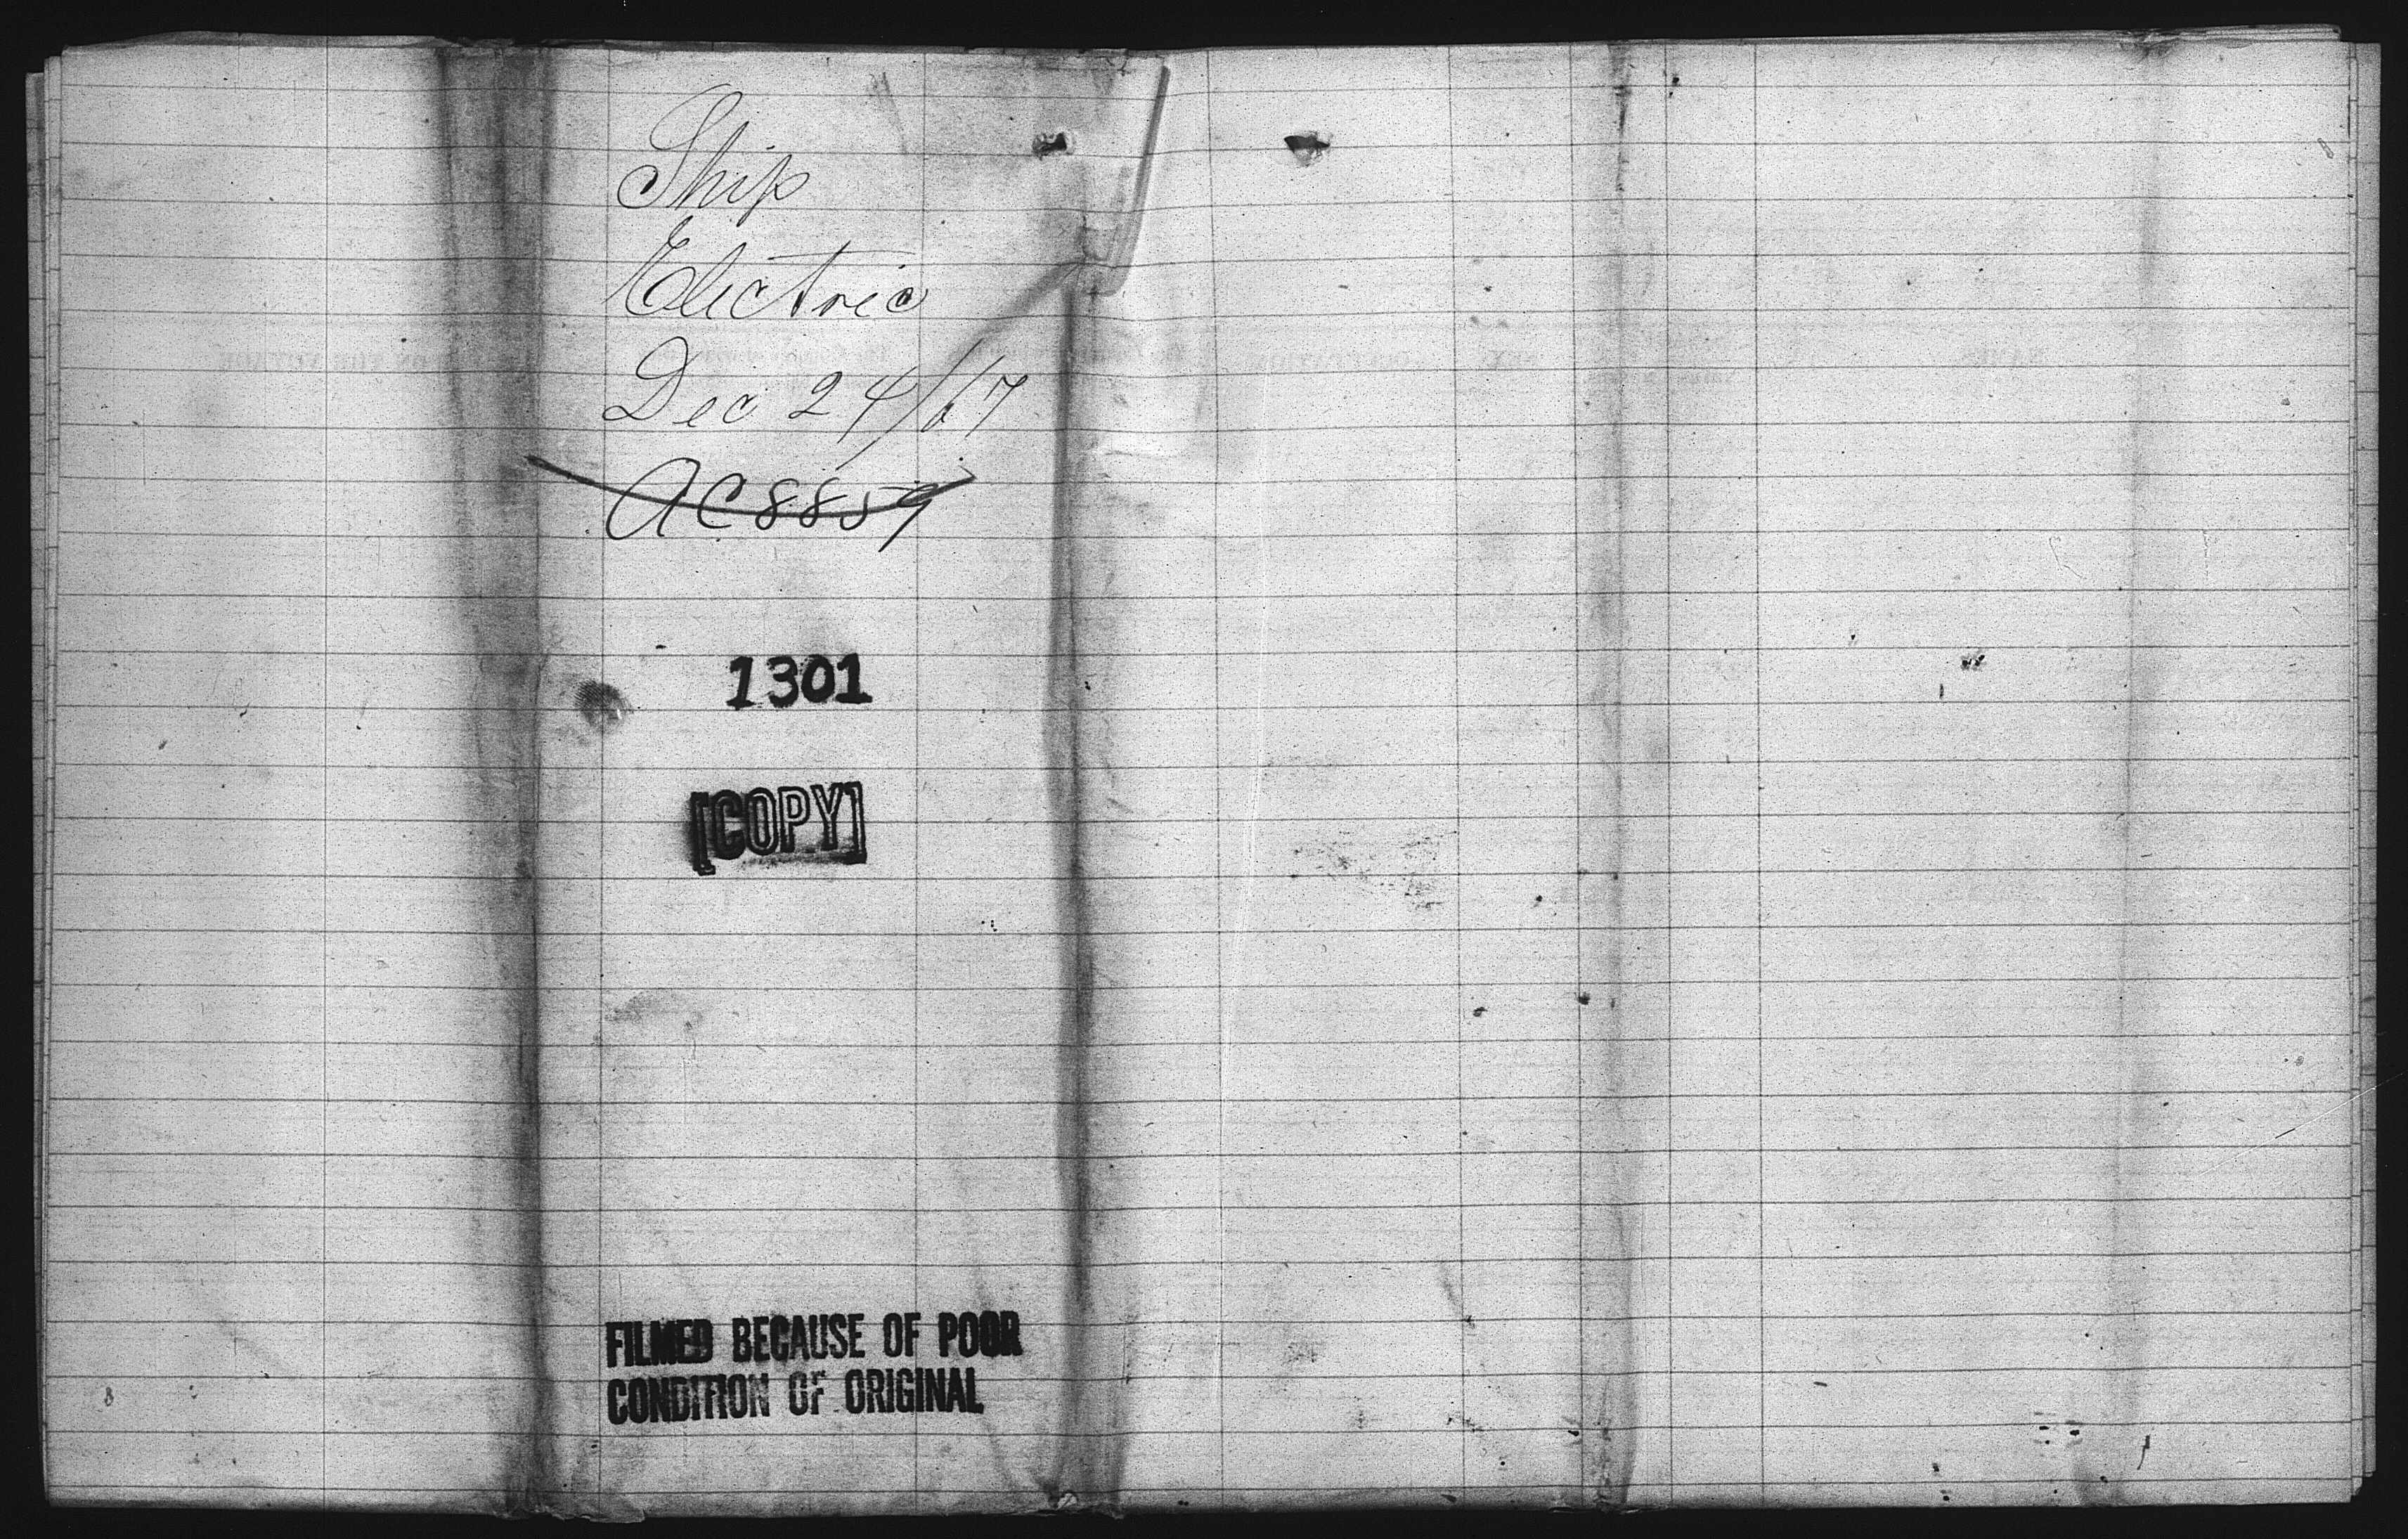 Ship
Electric
Dec 24/67
AC8859
1301
[COPY]
FILMED BECAUSE OF POOR
CONDITION OF ORIGINAL